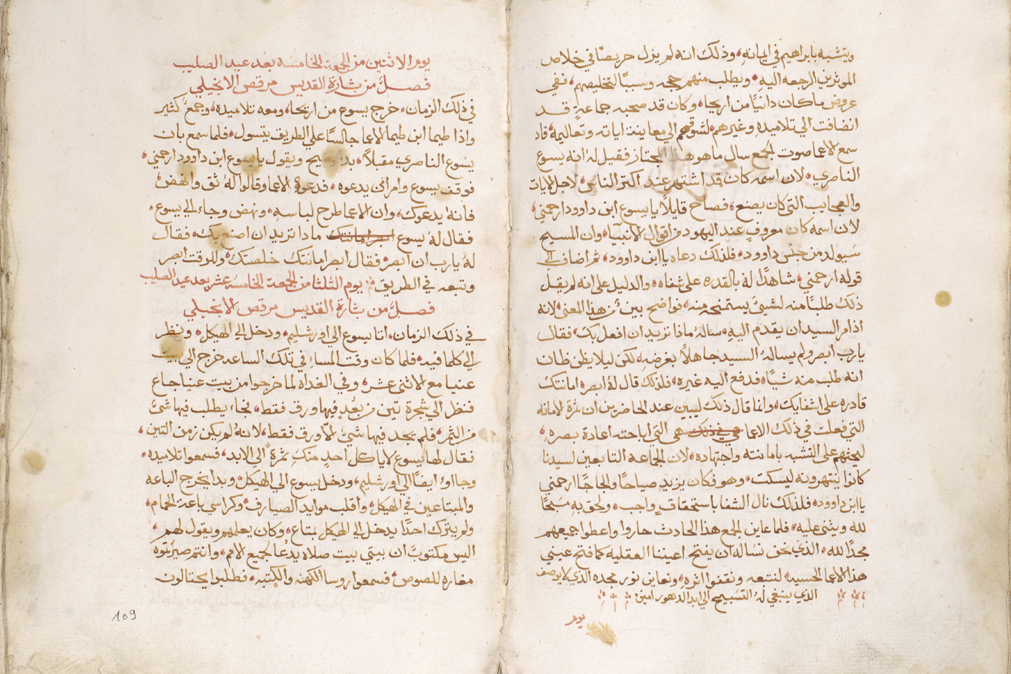 ويتشبه بابراهيم في ايمانه، وذلك انه لم يزل حريصًا في خلاص
الموثرين الرجعه اليه، ويطلب منهم حجه وسببًا لتخليصهم، ففي
عروض ما كان دانيًا من اريحا، وكان قد صحبه جماعه قد
انضافت الي تلاميذه وغيرهم لشوقهم الي معاينة اياته وتعاليمه، فاذ
سمع الاعما صوت الجمع سال ما هو هذا المجتاز فقيل له انه يسوع
الناصري، لان اسمه كان قد اشتهر عند اكثر الناس، لاجل الايات
والعجايب التي كان يصنع، فصاح قايلًا يا يسوع ابن داوود ارحمني،
لان اسمه كان معروف عند اليهود من اقوال الانبيا، وان المسيح
سيولد من جنس داوود، فلذلك دعاه يا ابن داوود، ثم اضاف الي
قوله ارحمني، شاهدًا له بالقدره علي شفاه، والدليل علي انه لم يقل
ذلك طلبًا منه لشيئ يستمنحه منه، فواضح بين من هذا المعني، لانه
اذ امر السيد ان يقدم اليه، ساله ماذا تريد ان افعل بك، فقال
يا رب ابصر ولم يساله السيد جاهلًا بغرضه لكن ليلا يظن ظان
انه طلب منه شيًا، فدفع اليه غيره، فلذلك قال له ابصر، امانتك
قادره علي شفايك، وانما قال ذلك ليبين عند الحاضرين ان ثمرة الامانه
التي فعلت في ذلك الاعما هي التي اباحته اعادة بصره،
ليحثهم علي التشبه بامانته واجتهاده، لان الجماعه التابعين لسيدنا
كانوا ينتهرونه ليسكت، وهو فكان يزيد صياحًا ولجاجًا ارحمني
يا ابن داوود، فلذلك نال الشفا باستحقاق واجب، ولحق به مسبحًا
لله ويثني عليه، فلما عاين الجمع هذا الحادث حاروا واعطوا جميعهم
مجدًا لله، الذي نحن نساله ان يفتح اعيننا العقليه كما فتح عيني
هذا الاعما الحسيه، لنتبعه ونقفوا اثره، ونعاين نور مجده الذي لا يوصف
الذي ينبغي له التسبيح الي ابد الدهور امين
يوم
يوم الاثنين من الجمعة الخامسه بعد عيد الصليب
فصلٌ من بشارة القديس مرقص الانجيلي
في ذلك الزمان، خرج يسوع من اريحا، ومعه تلاميذه، وجمعٌ كثير
واذا طيما ابن طيما الاعما جالسًا علي الطريق يتسول، فلما سمع بان
يسوع الناصري مقبلًا، بدا يصيح ويقول يا يسوع ابن داوود ارحمني،
فوقف يسوع وامر ان يدعوه، فدعوا الاعما وقالوا له ثق وانهض،
فانه يدعوك، وان الاعما طرح لباسه، ونهض وجاء الي يسوع،
فقال له يسوع ابصر امانتك ماذا تريد ان اصنع بك، فقال
له يا رب ان ابصر، فقال ابصر امانتك خلصتك، وللوقت ابصر
وتبعه في الطريق، يوم الثلثا من الجمعة الخامسة عشر بعد عيد الصليب
فصلٌ من بشارة القديس مرقص الانجيلي
في ذلك الزمان، اتا يسوع الي اورشليم، ودخل الي الهيكل، ونظر
الي كلما فيه، فلما كان وقت المسا، في تلك الساعه خرج الي بيت
عنيا مع الاثني عشر، وفي الغداه لما خرجوا من بيت عنيا جاع
فنظر الي شجرة تين من بُعدٍ فيها ورق فقط، فجاء يطلب فيها شئ
من الثمر، فلم يجد فيها شئ الا ورق فقط، لانه لم يكن زمن التين،
فقال لها يسوع لا ياكل احدٍ منك ثمرةً الي الابد، فسمعوا تلاميذه،
وجاوا ايضًا الي اورشليم، ودخل يسوع الي الهيكل، وبدا يخرج الباعه
والمبتاعين في الهيكل، واقلب موايد الصيارف، وكراسي باعة الحمام،
ولم يترك احدًا يدخل الي الهيكل بمتاع، وكان يعلمهم ويقول لهم،
اليس مكتوبٌ ان بيتي بيت صلاه يدعا لجميع الامم، وانتم صيرتموه
مغارة للصوص، فسمعوا روسا الكهنه والكتبه، فطلبوا يحتالون
109